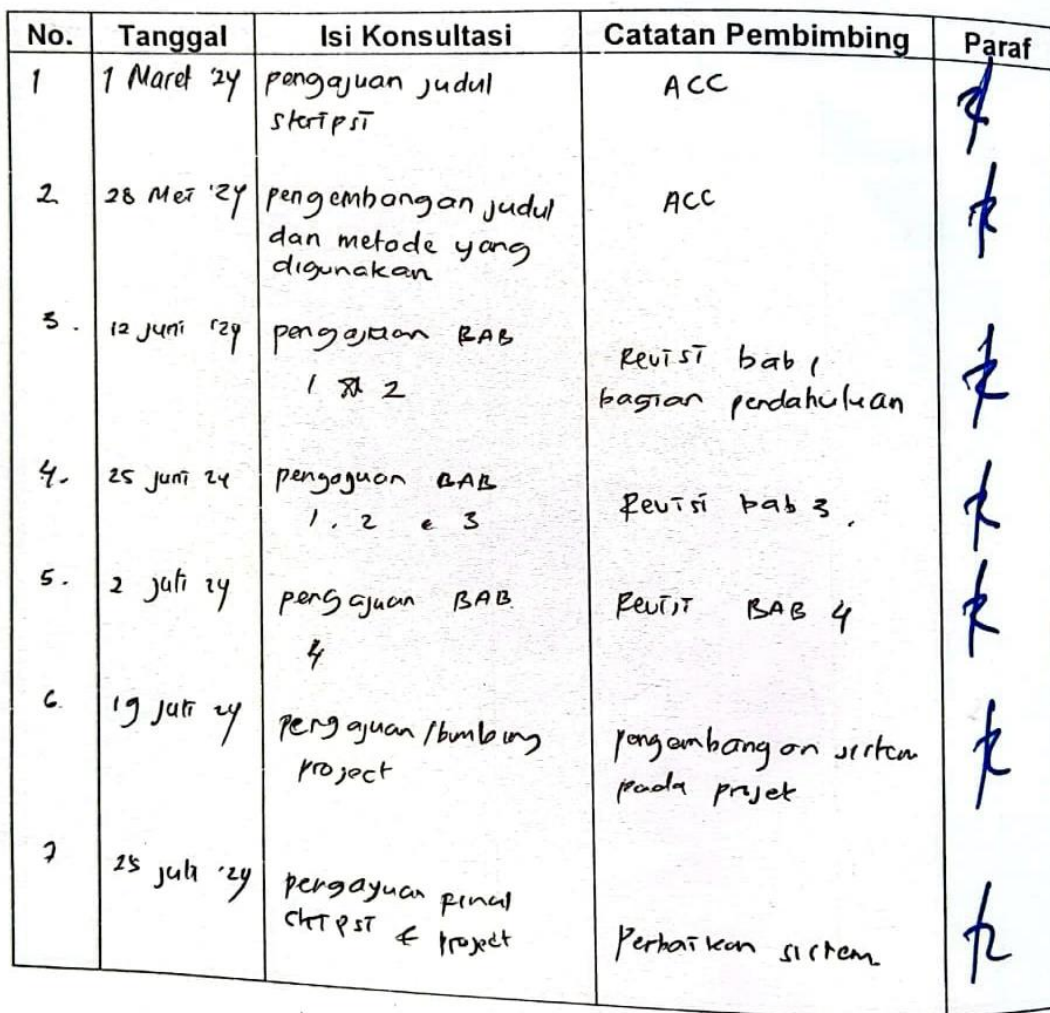 No. Tanggal Isi Konsultasi Catatan Pembimbing Paraf
1 1 Maret '24 pengajuan judul ACC
skripsi
2 28 Mei '24 pengembangan judul ACC
dan metode yang
digunakan
3. 12 juni '24 pengajuan BAB
1 & 2
Revisi bab 1
bagian pendahuluan
4. 25 juni 24 pengajuan BAB
1, 2 & 3
Revisi bab 3.
5. 2 juli 24 pengajuan BAB
4
Revisi BAB 4
6. 19 juli 24 pengajuan/bimbing
project
pengembangan sistem
pada projek
7 25 juli '24 pengajuan final
skripsi & project
Perbaikan sistem